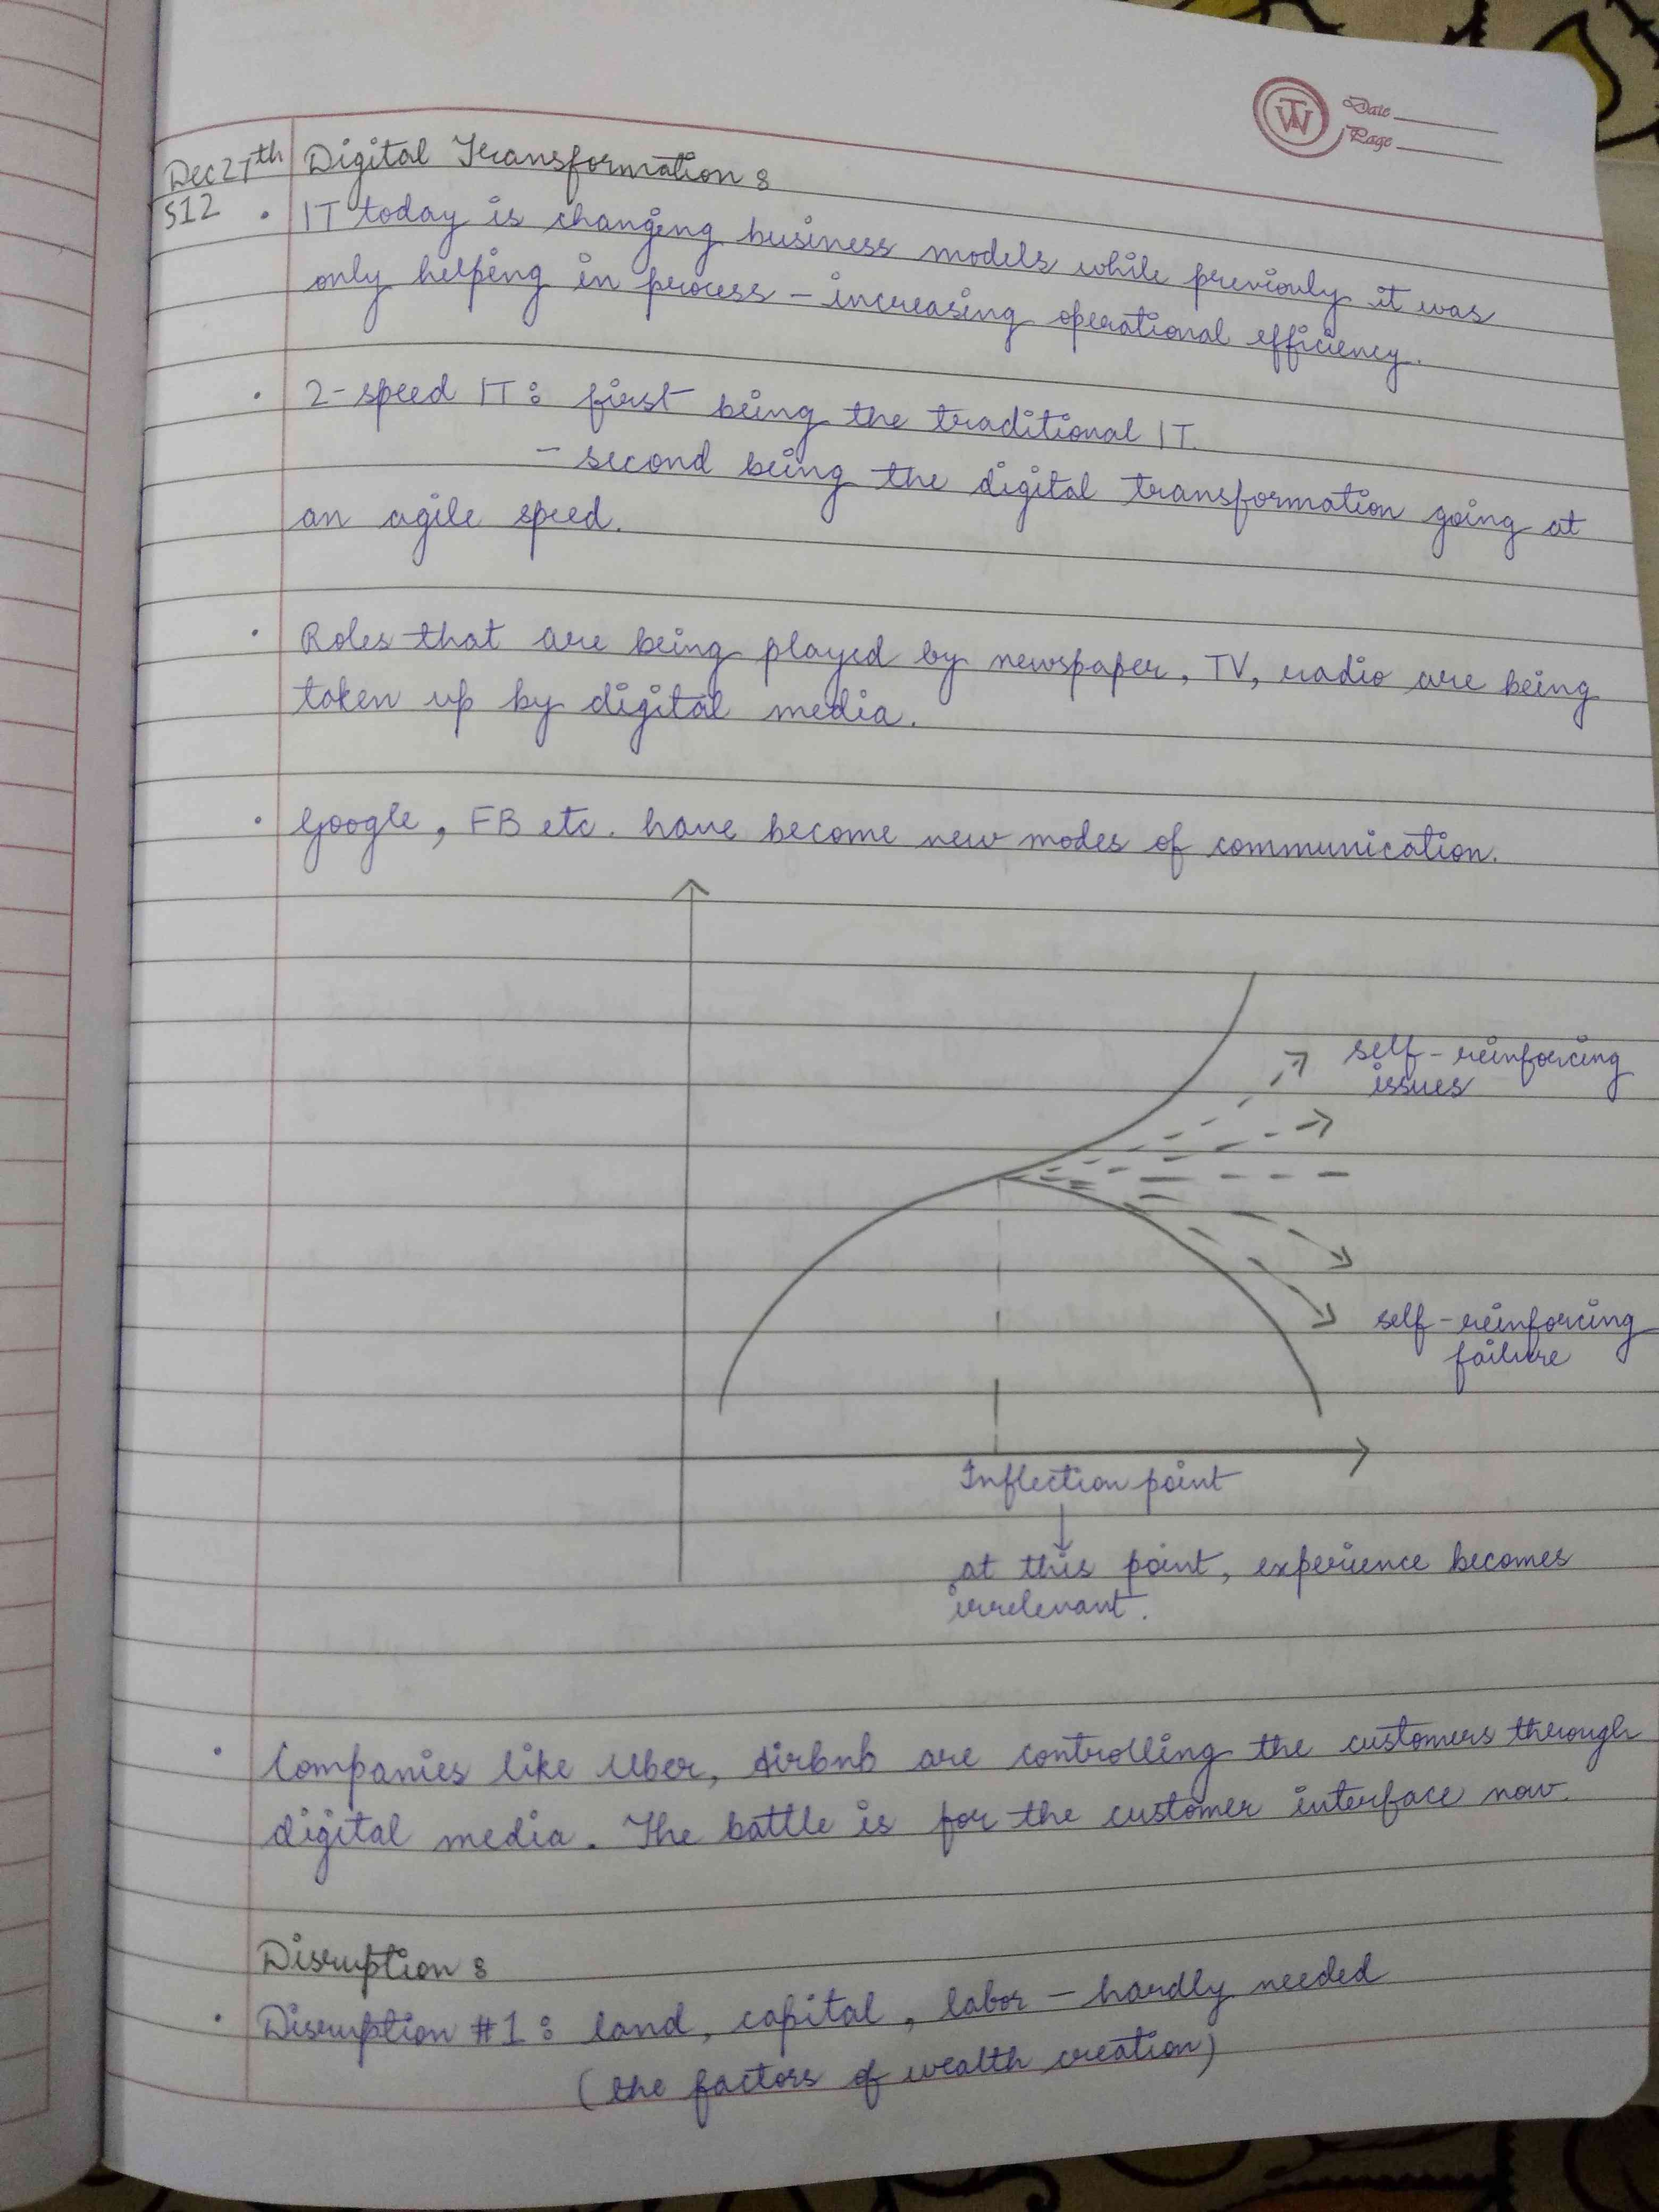 Date
Page
Dec 27th Digital Transformation :
S12 • IT today is changing business models while previouly it was
only helping in process - increasing operational efficiency.
• 2-speed IT : first being the traditional IT.
- second being the digital transformation going at
an agile speed.
• Roles that are being played by newspaper, TV, radio are being
taken up by digital media.
• Google, FB etc. have become new modes of communication.
self-reinforcing
issues
self-reinforcing
failure
Inflection point
at this point, experience becomes
irrelevant.
• Companies like Uber, Airbnb are controlling the customers through
digital media. The battle is for the customer interface now.
Disruption :
• Disruption #1 : land, capital, labor - hardly needed
(the factors of wealth creation)